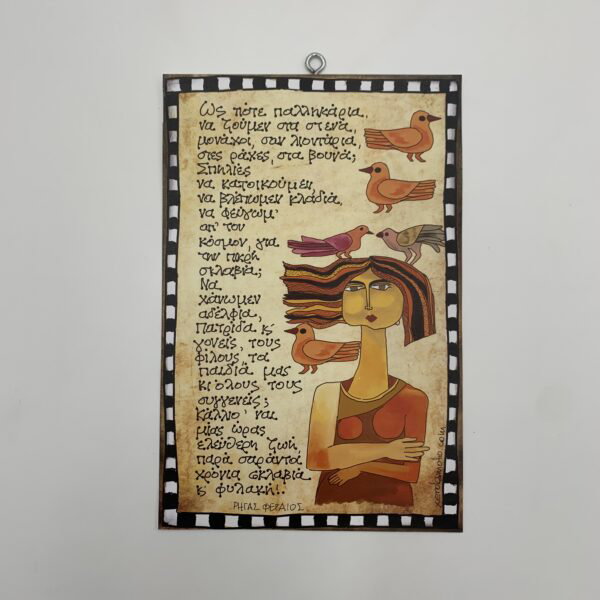 Ὡς πότε παλληκάρια,
να ζούμεν στα στενά,
μονάχοι, σαν λιοντάρια,
στες ράχες, στα βουνά;
Σπηλιές
να κατοικούμεν,
να βλέπωμεν κλαδιά,
να φεύγωμ'
απ' τον
κόσμον, για
την πικρή
σκλαβιά;
Να
χάνωμεν
αδέλφια,
Πατρίδα κ'
γονείς, τους
φίλους, τα
παιδιά μας
κι όλους τους
συγγενείς;
Κάλλιο 'ναι
μίας ώρας
ελεύθερη ζωή,
παρά σαράντα
χρόνια σκλαβιά
κ' φυλακή!..
ΡΗΓΑΣ ΦΕΡΑΙΟΣ